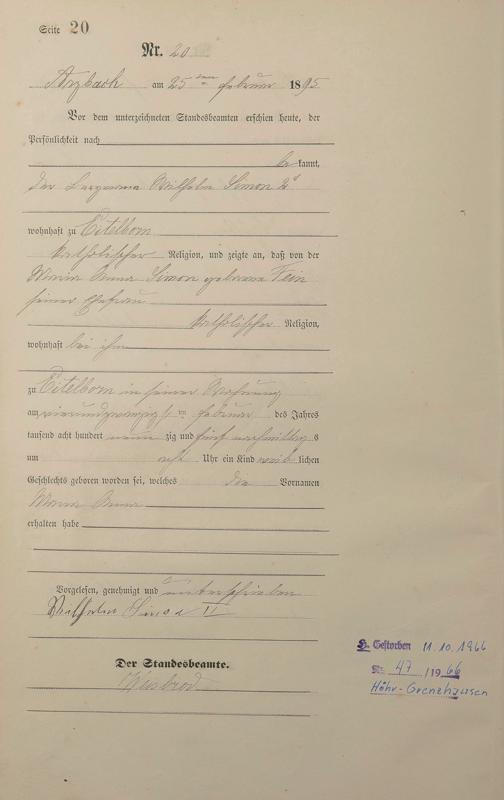 Seite 20
Nr. 20
Arzbach am 25ten Februar 1895
Vor dem unterzeichneten Standesbeamten erschien heute, der
Persönlichkeit nach
be kannt,
der Bergmann Wilhelm Simon 2t
wohnhaft zu Eitelborn
katholischer Religion, und zeigte an, daß von der
Maria Anna Simon geborene Fein
seiner Ehefrau
katholischer Religion,
wohnhaft bei ihm
zu Eitelborn in seiner Wohnung
am vierundzwanzigsten Februar des Jahres
tausend acht hundert neun zig und fünf nachmittag s
um acht Uhr ein Kind weib lichen
Geschlechts geboren worden sei, welches die Vornamen
Maria Anna
erhalten habe
Vorgelesen, genehmigt und unterschrieben
Wilhelm Simon II
Der Standesbeamte.
Weisbrod
Gestorben 11.10.1966
Nr. 47 / 19 66
Höhr-Grenzhausen